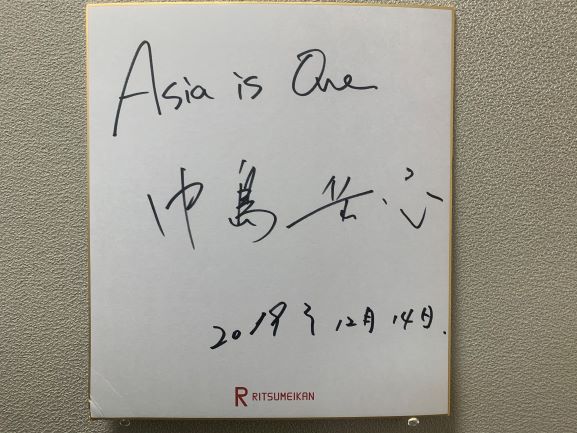 Asia is One
中島岳志
2019年12月14日.
R RITSUMEIKAN